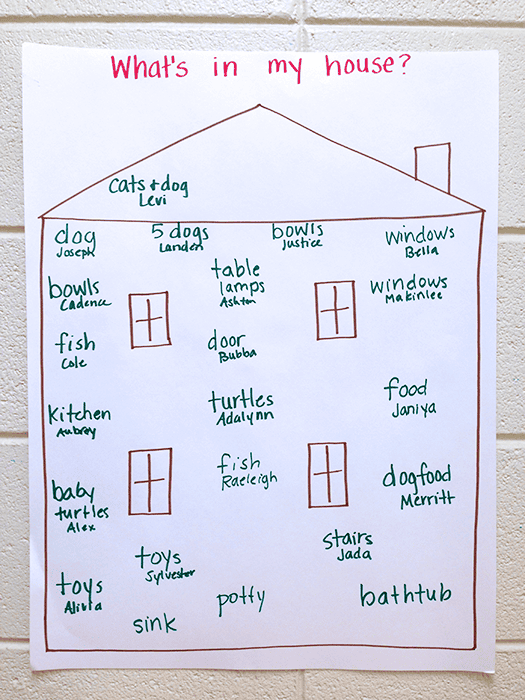 What's in my house?
cats + dog
Levi
dog
Joseph
5 dogs
Landen
bowls
Justice
windows
Bella
bowls
Cadence
table
lamps
Ashton
windows
Makinlee
fish
Cole
door
Bubba
kitchen
Aubrey
turtles
Adalynn
food
Janiya
baby
turtles
Alex
fish
Raeleigh
dogfood
Merritt
toys
Sylvester
stairs
Jada
toys
Alivia
sink
potty
bathtub